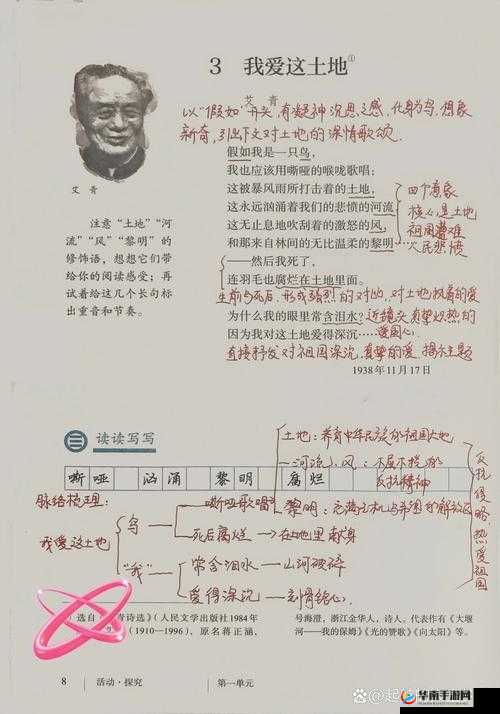 3 我爱这土地①
艾青
以“假如”开头,有凝神沉思之感,化身为鸟,想象
新奇,引出下文对土地的深情歌颂.
假如我是一只鸟,
我也应该用嘶哑的喉咙歌唱:
这被暴风雨所打击着的土地,
这永远汹涌着我们的悲愤的河流,
这无止息地吹刮着的激怒的风,
和那来自林间的无比温柔的黎明……
四个意象
核心是土地
祖国遭难
人民悲愤
——然后我死了,
连羽毛也腐烂在土地里面。
生前与死后,形成强烈的对比,对土地执着的爱
为什么我的眼里常含泪水?
近镜头 真挚炽热的
因为我对这土地爱得深沉……
爱国心
直接抒发对祖国深沉,真挚的爱,揭示主题
1938年11月17日
艾青
注意“土地”“河
流”“风”“黎明”的
修饰语,想想它们带
给你的阅读感受;再
试着给这几个长句标
出重音和节奏。
三 读读写写
嘶哑 汹涌 黎明 腐烂
土地:养育中华民族的祖国大地
河流、风:不屈不挠的
反抗精神
黎明:充满生机与希望的解放区
反抗侵略热爱祖国
脉络梳理:
我爱这土地
鸟
嘶哑歌唱
死后腐烂→在地里献身
“我”
常含泪水→山河破碎
爱得深沉→刻骨铭心.
选自《艾青诗选》(人民文学出版社1984年
(1910—1996),原名蒋正涵,
号海澄,浙江金华人,诗人。代表作有《大堰
河——我的保姆》《光的赞歌》《向太阳》等。
8 活动·探究 第一单元
华南手游网